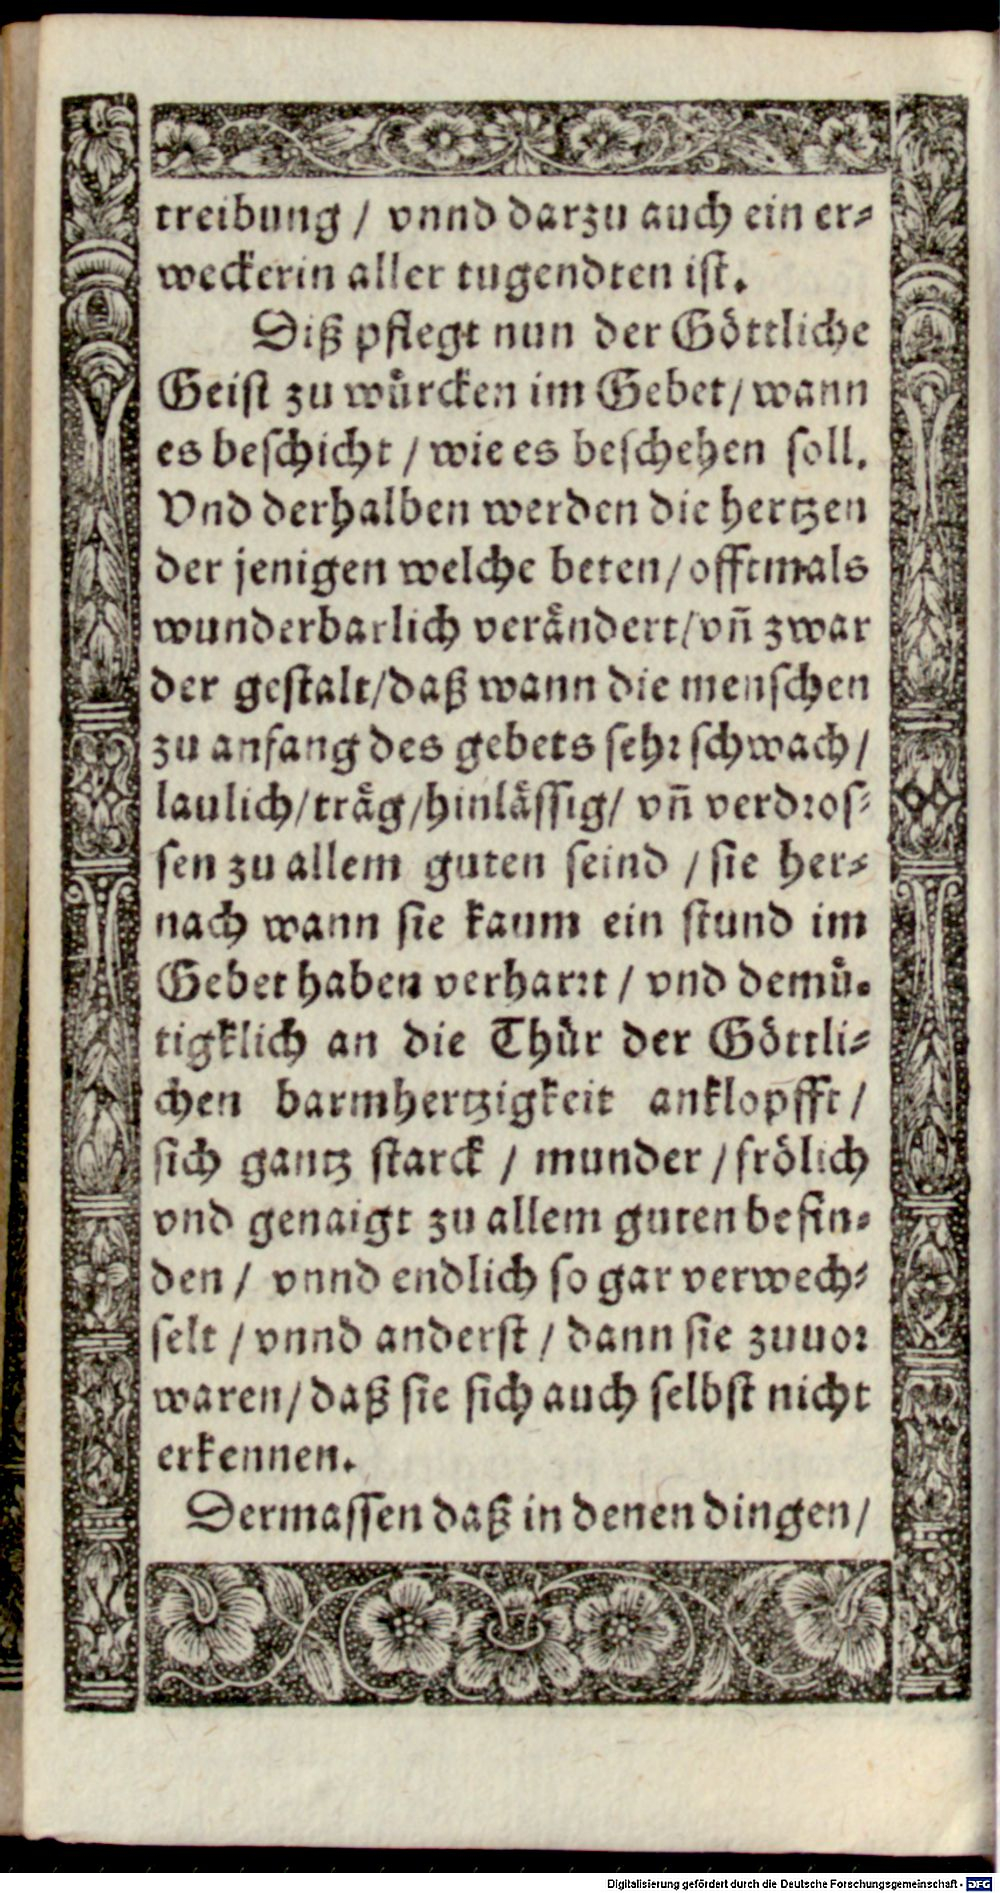 treibung / vnnd darzu auch ein er⸗
weckerin aller tugendten ist.
Diß pflegt nun der Göttliche
Geist zu würcken im Gebet / wann
es beschicht / wie es beschehen soll.
Vnd derhalben werden die hertzen
der jenigen welche beten / offtmals
wunderbarlich verändert / vñ zwar
der gestalt / daß wann die menschen
zu anfang des gebets sehr schwach /
laulich / träg / hinlässig / vñ verdros⸗
sen zu allem guten seind / sie her⸗
nach wann sie kaum ein stund im
Gebet haben verharrt / vnd demü⸗
tigklich an die Thür der Göttli⸗
chen barmhertzigkeit anklopfft /
sich gantz starck / munder / frölich
vnd genaigt zu allem guten befin⸗
den / vnnd endlich so gar verwech⸗
selt / vnnd anderst / dann sie zuuor
waren / daß sie sich auch selbst nicht
erkennen.
Dermassen daß in denen dingen /
Digitalisierung gefördert durch die Deutsche Forschungsgemeinschaft - DFG